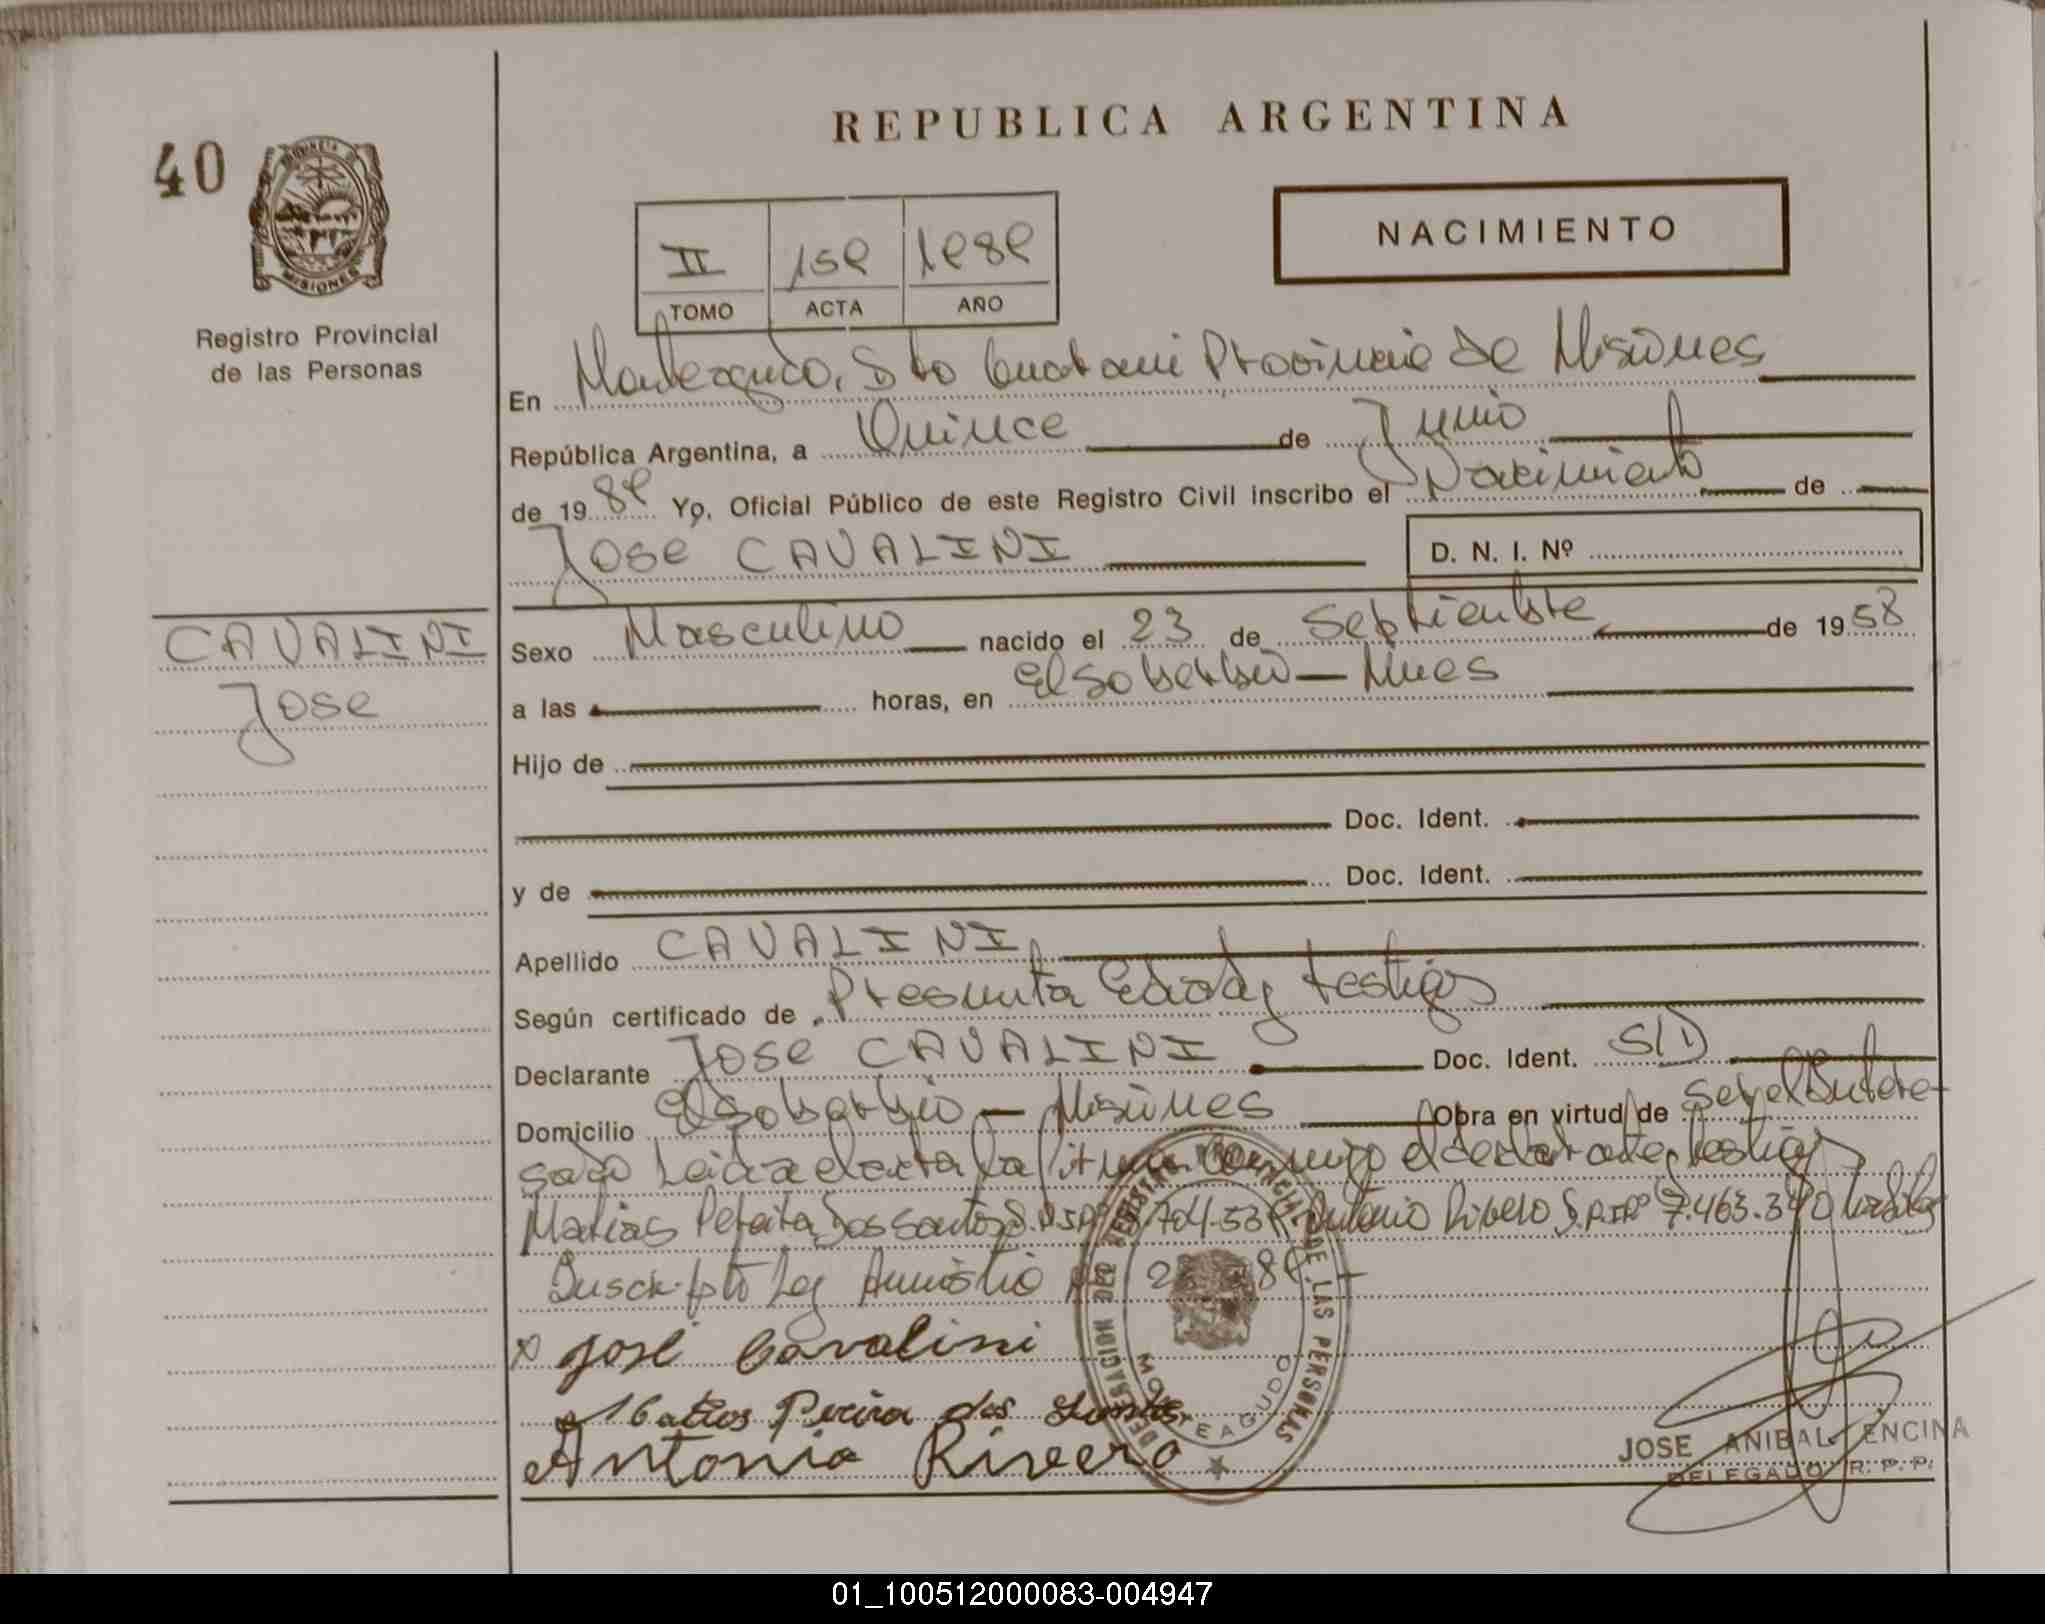 REPUBLICA ARGENTINA
40
PROVINCIA DE MISIONES
Registro Provincial
de las Personas
II 159 1989
TOMO ACTA AÑO
NACIMIENTO
En Monteagudo, Gto Guarani Provincia de Misiones
República Argentina, a Quince de Junio
de 1989 Yo, Oficial Público de este Registro Civil inscribo el Nacimiento de
Jose CAVALINI D. N. I. Nº
CAVALINI
Jose
Sexo Masculino nacido el 23 de Septiembre de 1958
a las horas, en El Soberbio — Mnes
Hijo de
Doc. Ident.
y de Doc. Ident.
Apellido CAVALINI
Según certificado de Presunta Edad y testigos
Declarante Jose CAVALINI Doc. Ident. S/D
Domicilio El Soberbio — Misiones Obra en virtud de ser el Intere-
sado Leida el acta la firman conmigo el declarante y testigos
Matias Pereira Dos Santos D.N.I.Nº 704.53 Antonio Ribero D.N.I.Nº 7.463.340
Suscripto Ley Amnistia Nº 2 89 —
x José Cavalini
Matios Pereira dos Santos
Antonio Rivero
DELEGACION DEL REGISTRO PROVINCIAL DE LAS PERSONAS
MONTEAGUDO
JOSE ANIBAL ENCINA
DELEGADO R. P. P.
01_100512000083-004947